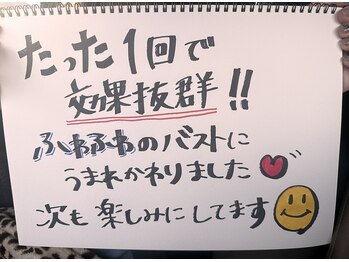 たった1回で
効果抜群!!
ふわふわのバストに
うまれかわりました
次も楽しみにしてます